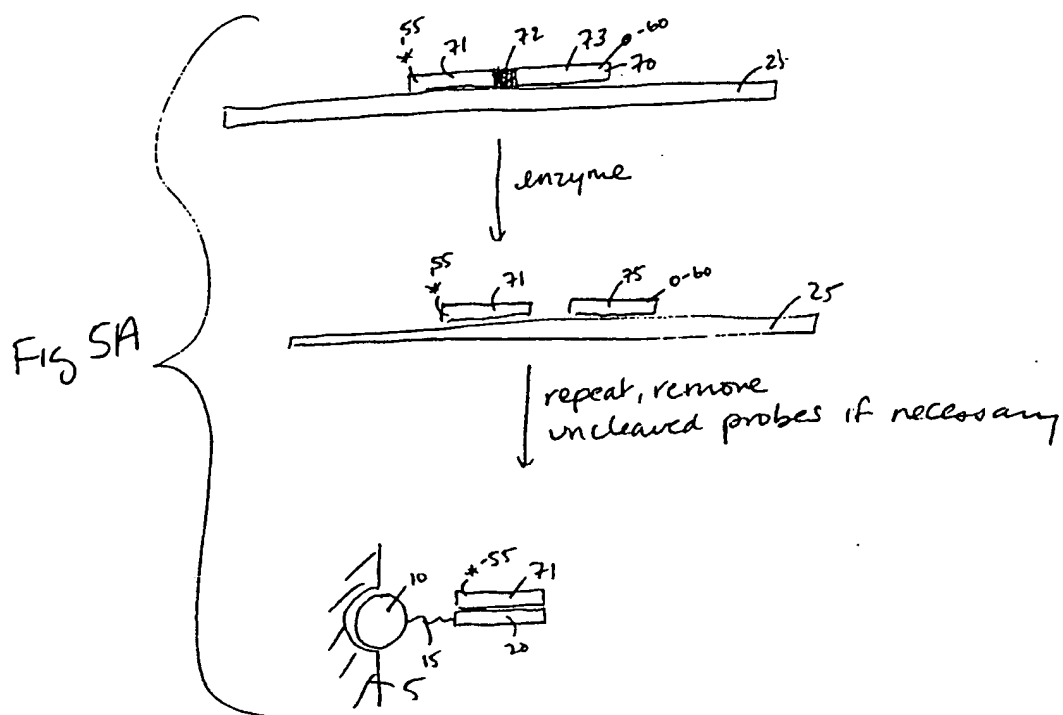 *55 71 72 73 o-60
70 25
enzyme
*55 71 75 o-60
25
Fig 5A
repeat, remove
uncleaved probes if necessary
10 *-55 71
15 20
5